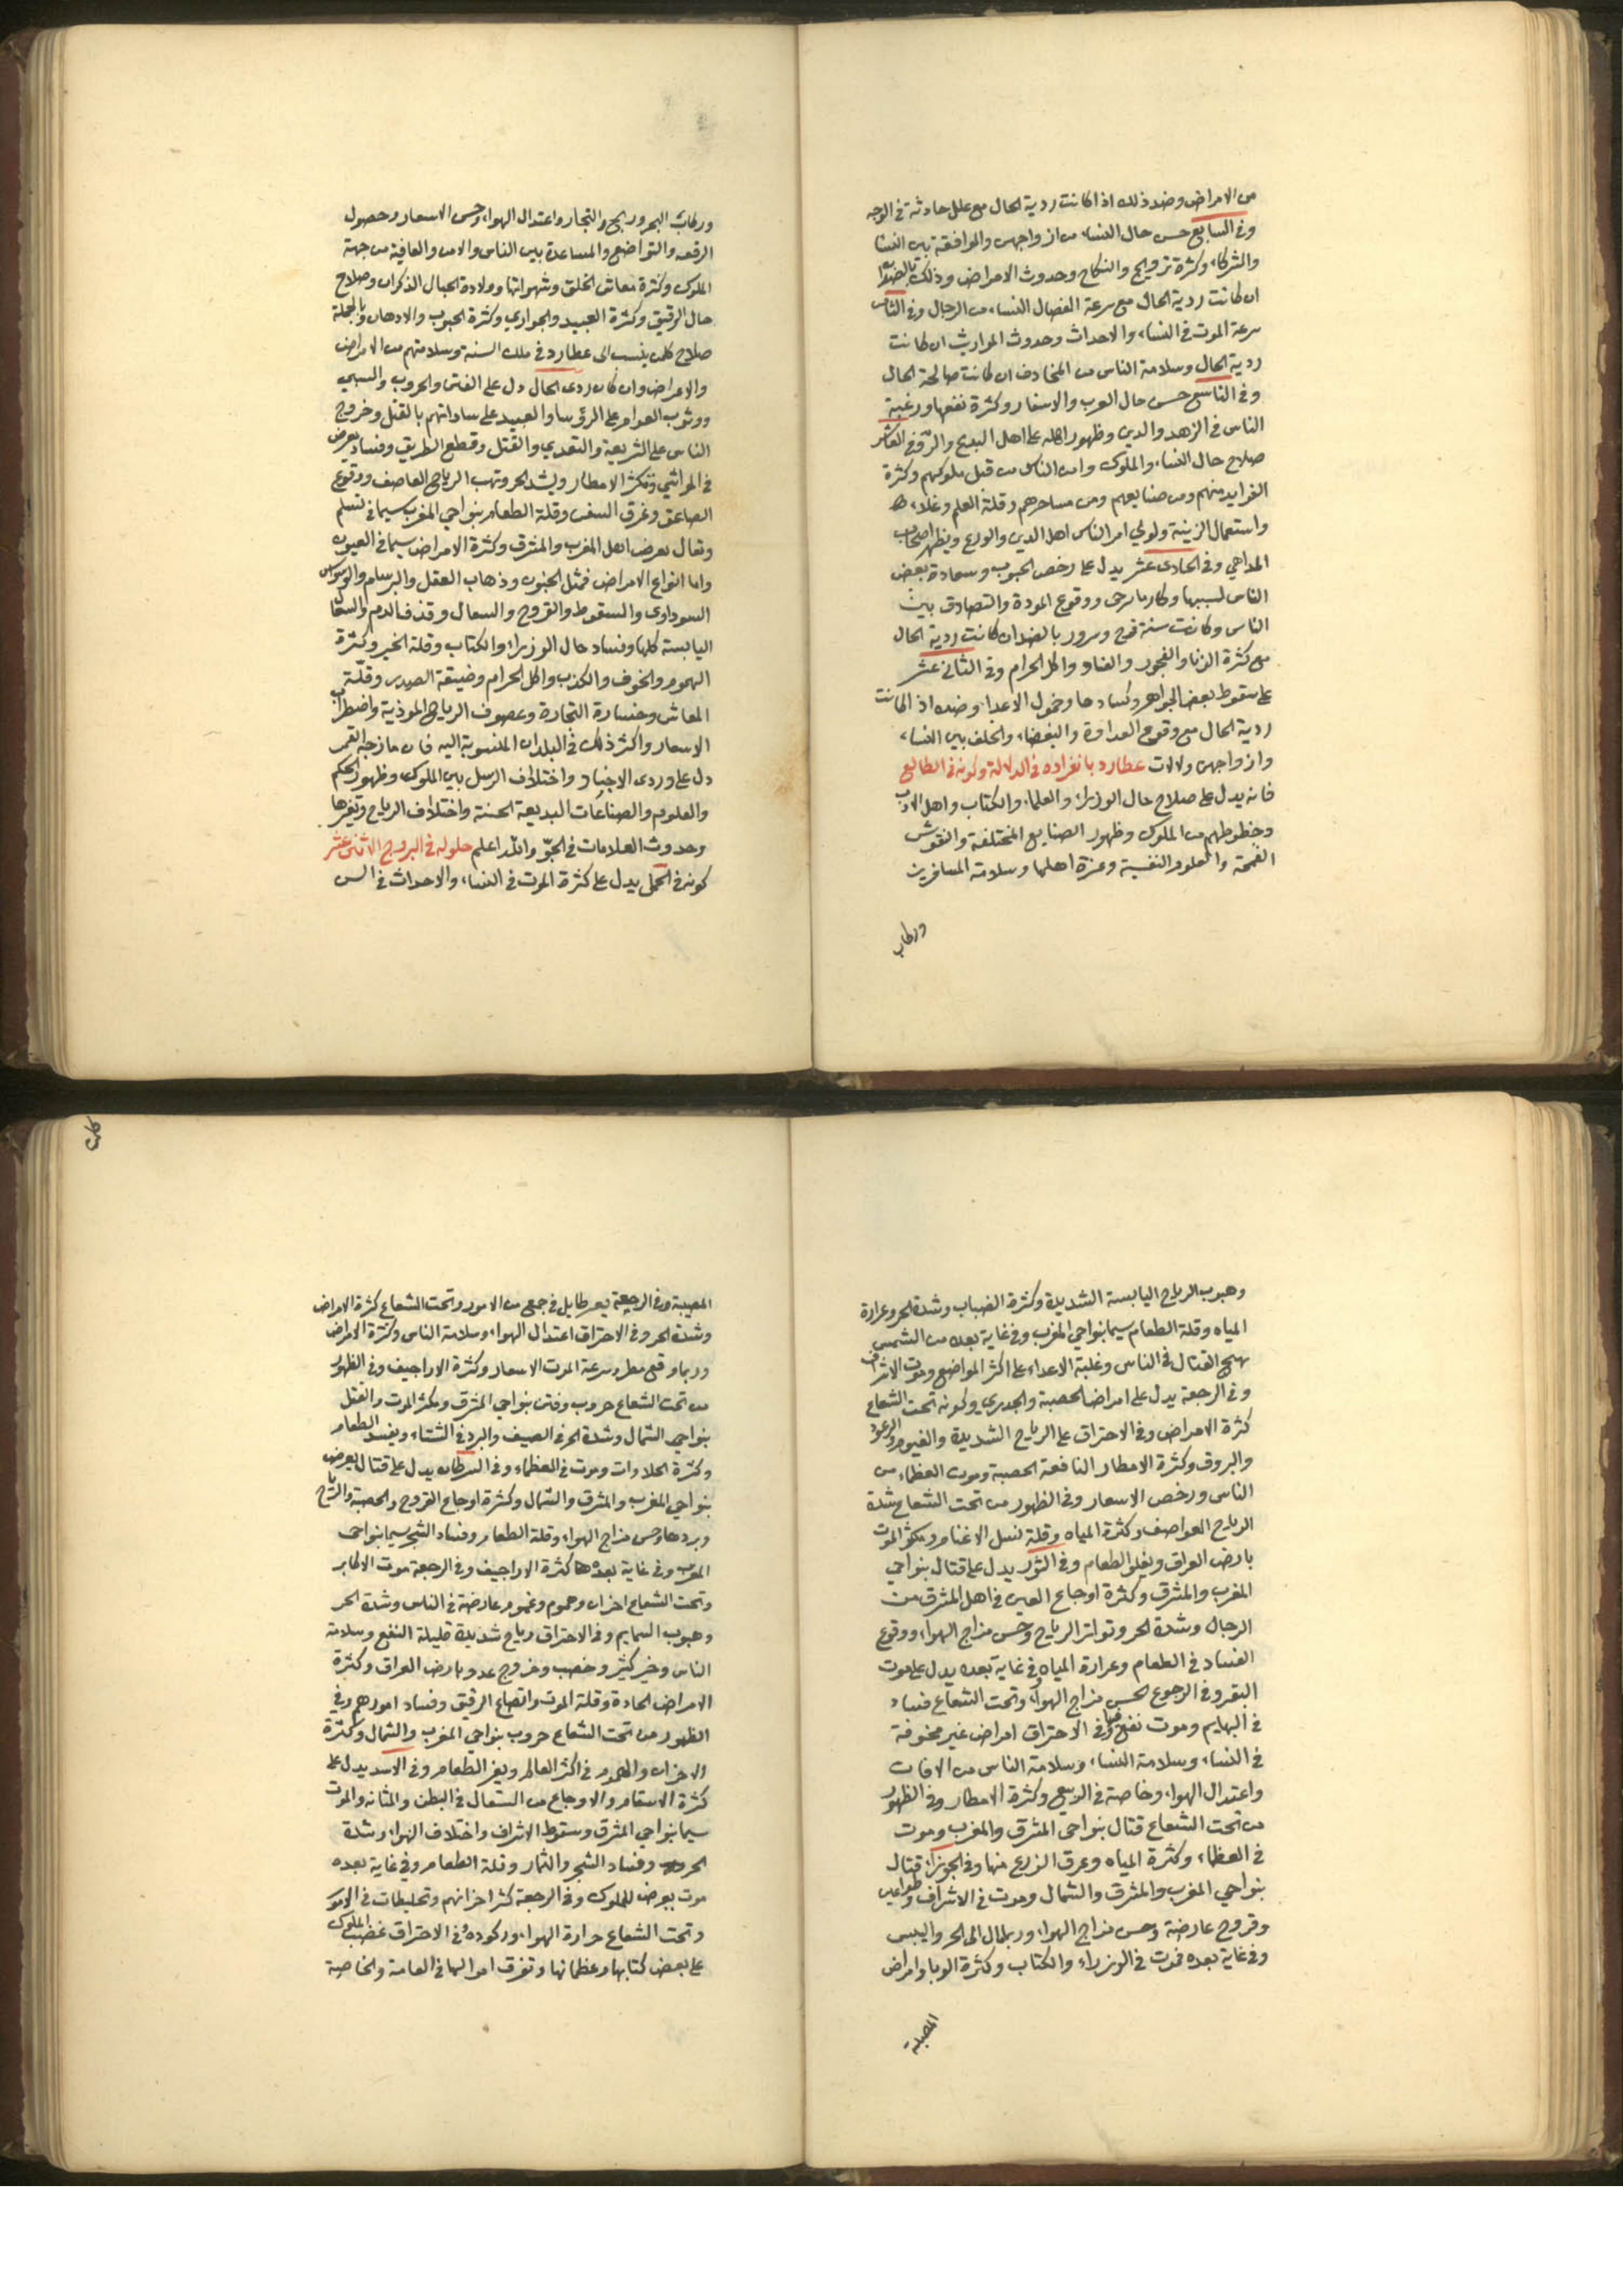 من الامراض وضد ذلك اذا كانت ردية الحال مع علل حادثة في الوجه
وفي السابع حسن حال النساء من ازواجهن والموافقة بين النسا
والشركاء وكثرة تزويج والنكاح وحدوث الامراض وذلك بالضد
ان كانت ردية الحال مع سرعة انفصال النساء من الرجال وفي الثامن
سرعة الموت في النساء والاحداث وحدوث المواريث ان كانت
ردية الحال وسلامة الناس من المخاوف ان كانت صالحة الحال
وفي التاسع حسن حال العرب والاسفار وكثرة نفعها ورغبة
الناس في الزهد والدين وظهور اهله على اهل البدع وفي العاشر
صلاح حال النساء والملوك وامن الناس من قبل ملوكهم وكثرة
الفوايد منهم ومن صنايعهم ومن وقلة العلم
واستعمال الزينة امر الناس اهل الدين والورع ويظهر اصحاب
الملاهي وفي الحادي عشر يدل على رخص الحبوب وسعادة بعض
الناس ووقوع المودة والتصادق بين
الناس وكانت سنة فرح وسرور بالضد ان كانت ردية الحال
مع كثرة الزنا والفجور والفساد واكل الحرام وفي الثاني عشر
على سقوط بعض الجواهر وكسادها وخمول الاعداء وضده اذا كانت
ردية الحال مع وقوع العداوة والبغضاء والخلف بين النساء
وازواجهن دلالات عطارد بانفراده في الدلالة وكونه في الطالع
فانه يدل على صلاح حال الوزراء والعلماء والكتاب واهل الادب
وحظوظهم من الملوك وظهور الصنايع المختلفة والنقوش
والعلوم النفيسة وعزة اهلها وسلامة المسافرين
وركاب
وركاب البحر وربح والتجار واعتدال الهواء وحسن الاسعار وحصول
والتواضع والمساعدة بين الناس والامن والعافية من جهة
الملوك وكثرة معاش الخلق وشهواتها وولادة الحبال الذكران وصلاح
حال الرقيق وكثرة العبيد والجواري وكثرة الحبوب والادهان وبالجملة
صلاح كلمن ينسب الى عطارد في تلك السنة وسلامتهم من الامراض
والاعراض وان كان ردي الحال دل على الفتن والحروب والسبي
ووثوب العوام على الرؤسا والعبيد على ساداتهم بالقتل وخروج
الناس على الشريعة والتعدي والقتل وقطع الطريق وفساد يعرض
في المواشي وتكثر الامطار ويشد الحر وتهب الرياح العواصف ووقوع
الصاعق وغرق السفن وقلة الطعام بنواحي المغرب سيما في
وقتال يعرض اهل المغرب والمشرق وكثرة الامراض سيما في العيون
واما انواع الامراض فمثل الجنون وذهاب العقل والبرسام والوسواس
السوداوي والسقوط والقروح والسعال وقذف الدم والسعال
اليابسة كلها وفساد حال الوزراء والكتاب وقلة الخير وكثرة
الهموم والخوف والكذب واكل الحرام وضيقة الصدر وقلة
المعاش وخسارة التجارة وعصوف الرياح الموذية واضطراب
الاسعار واكثر ذلك في البلدان المنسوبة اليه فان مازجه القمر
دل على ورود الاخبار واختلاف الرسل بين الملوك وظهور الحكم
والعلوم والصناعات البديعة الحسنة واختلاف الرياح وتغيرها
وحدوث العلامات في الجو والله اعلم حلوله في البروج الاثني عشر
كونه في الحمل يدل على كثرة الموت في النساء والاحداث في السن
وهبوب الرياح اليابسة الشديدة وكثرة الضباب وشدة الحر وعرارة
المياه وقلة الطعام سيما بنواحي المغرب وفي غاية بعده من الشمس
يهيج القتال في الناس وغلبة الاعداء على اكثر المواضع وموت الاشراف
وفي الرجعة يدل على امراض الحصبة والجدري وكونه تحت الشعاع
كثرة الامراض وفي الاحتراق على الرياح الشديدة والغيوم والرعود
والبروق وكثرة الامطار النافعة الحصبة وموت العظماء من
الناس ورخص الاسعار وفي الظهور من تحت الشعاع شدة
الرياح العواصف وكثرة المياه وقلة نسل الاغنام ويكثر الموت
بارض العراق ويغلو الطعام وفي الثور يدل على قتال بنواحي
المغرب والمشرق وكثرة اوجاع العين في اهل المشرق من
الرجال وشدة الحر وتواتر الرياح وحسن مزاج الهواء ووقوع
الفساد في الطعام وعرارة المياه وفي غاية بعده يدل على موت
البقر وفي الرجوع الحسن مزاج الهواء وتحت الشعاع فساد
في البهايم وموت يقع فيها وفي الاحتراق امراض غير مخوفة
في النساء وسلامة النساء وسلامة الناس من الافات
واعتدال الهواء وخاصة في الربيع وكثرة الامطار وفي الظهور
من تحت الشعاع قتال بنواحي المشرق والمغرب وموت
في العظماء وكثرة المياه وغرق الزرع منها وفي الجوزاء قتال
بنواحي المغرب والمشرق والشمال وموت في الاشراف وطواعين
وقروح عارضة وحسن مزاج الهواء وربما مال الى الحر واليبس
وفي غاية بعده فموت في الوزراء والكتاب وكثرة الوبا وامراض
المصيبة وفي الرجعة في جمع من الامور وتحت الشعاع كثرة الامراض
وشدة الحر وفي الاحتراق اعتدال الهواء وسلامة الناس وكثرة الامراض
وربما وقع مطر وسرعة الموت الاسعار وكثرة الاراجيف وفي الظهور
من تحت الشعاع حروب وفتن بنواحي المشرق ويكثر الموت والقتل
بنواحي الشمال وشدة الحر في الصيف والبرد في الشتاء ويفسد الطعام
وكثرة الحلاوات وموت في العظماء وفي السرطان يدل على قتال يعرض
بنواحي المغرب والمشرق والشمال وكثرة اوجاع القروح والحصبة والرياح
وبردها وحسن مزاج الهواء وقلة الطعام وفساد الشجر سيما بنواحي
المغرب وفي غاية بعدها كثرة الاراجيف وفي الرجعة موت الاكابر
وتحت الشعاع احزان وهموم وغموم عارضة في الناس وشدة الحر
وهبوب السمايم وفي الاحتراق رياح شديدة قليلة النفع وسلامة
الناس وخير كثير وخصب وخروج عدو بارض العراق وكثرة
الامراض الحادة وقلة الموت واتضاع الرقيق وفساد امورهم وفي
الظهور من تحت الشعاع حروب بنواحي المغرب والشمال وكثرة
الاحزان والهموم في اكثر العالم ويعز الطعام وفي الاسد يدل على
كثرة الاسقام والاوجاع من السعال في البطن والمثانه والموت
سيما بنواحي المشرق وسقوط الاشراف واختلاف الهواء وشدة
الحر وفساد الشجر والثمار وقلة الطعام وفي غاية بعده
موت يعرض للملوك وفي الرجعة كثر احزانهم وتخليطات في الامور
وتحت الشعاع حرارة الهواء وركوده وفي الاحتراق غضب الملوك
على بعض كتابها وعظمائها وتفرق اموالها في العامة والخاصة